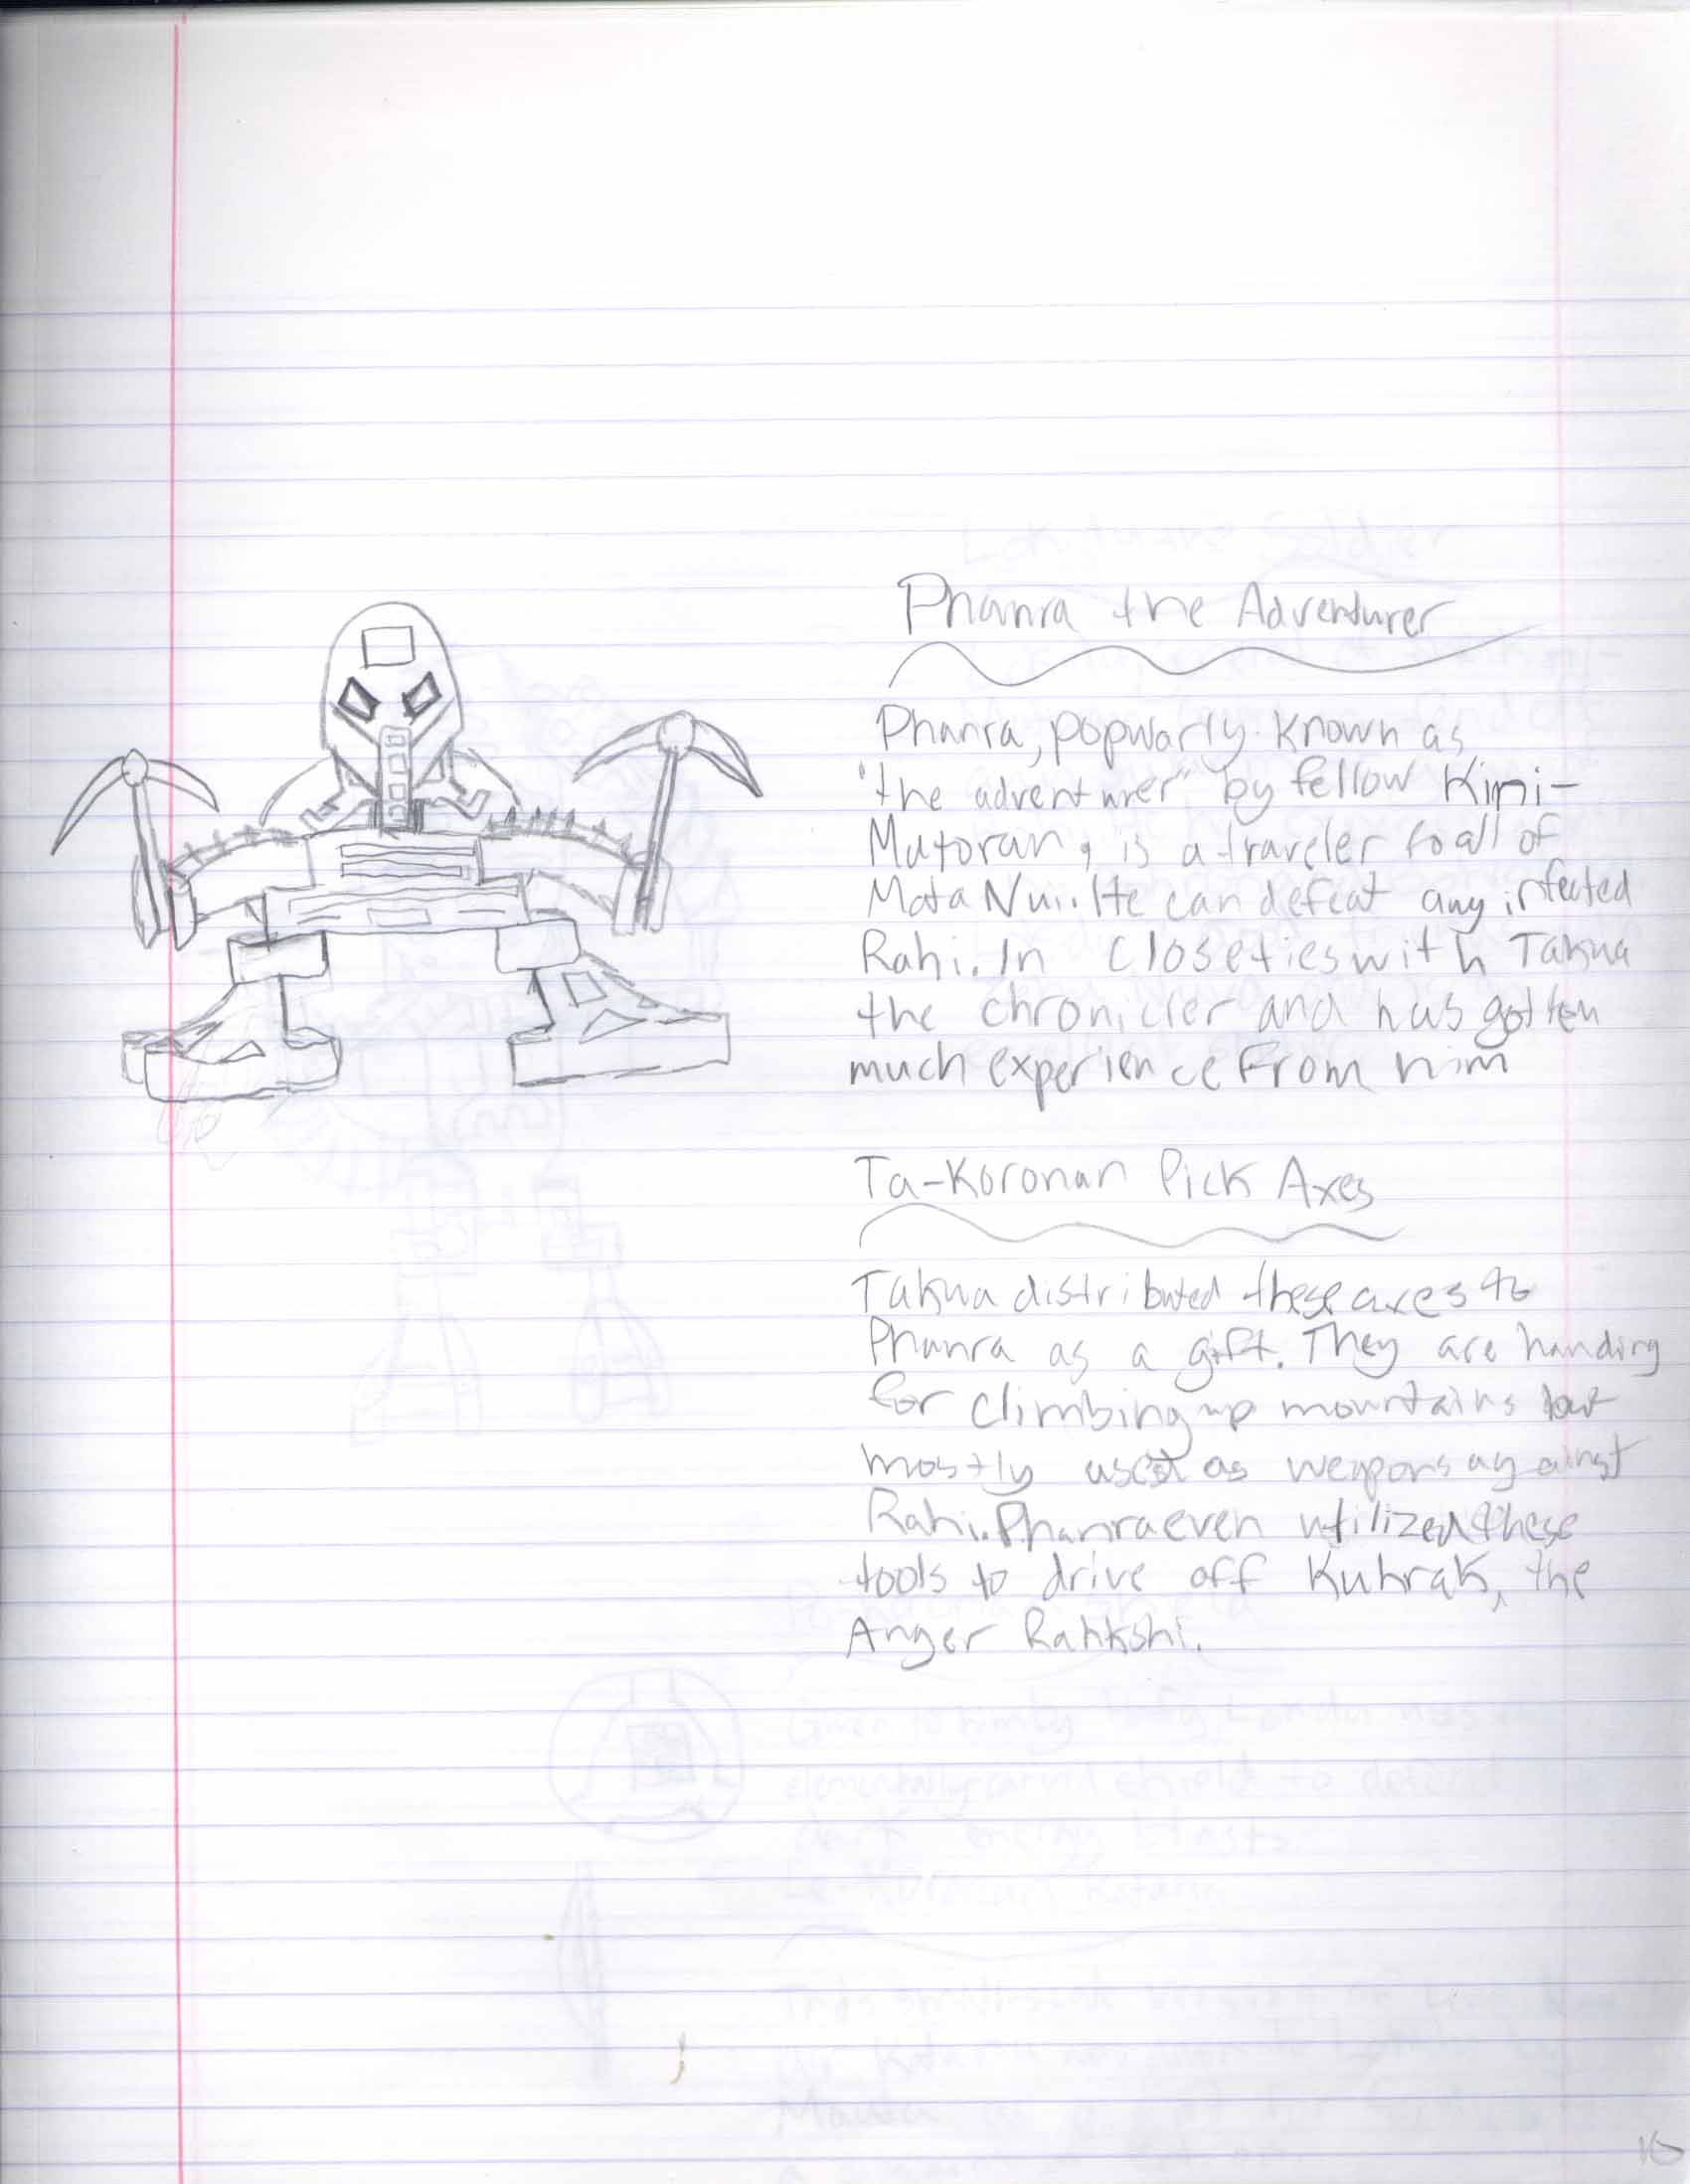 Phanra the Adventurer
Phanra, popularly known as
"the adventurer" by fellow Kini-
Matoran, is a traveler to all of
Mata Nui. He can defeat any infected
Rahi. In close ties with Takua
the chronicler and has gotten
much experience from him
Ta-Koronan Pick Axes
Takua distributed these axes to
Phanra as a gift. They are handing
for climbing up mountains but
mostly used as weapons against
Rahi. Phanra even utilized these
tools to drive off Kuhrak, the
Anger Rahkshi.